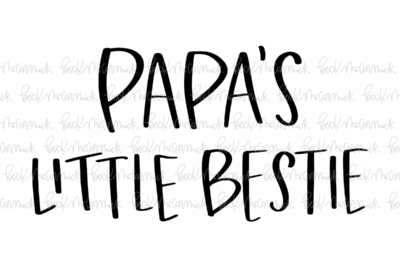 PAPA'S
LITTLE BESTIE